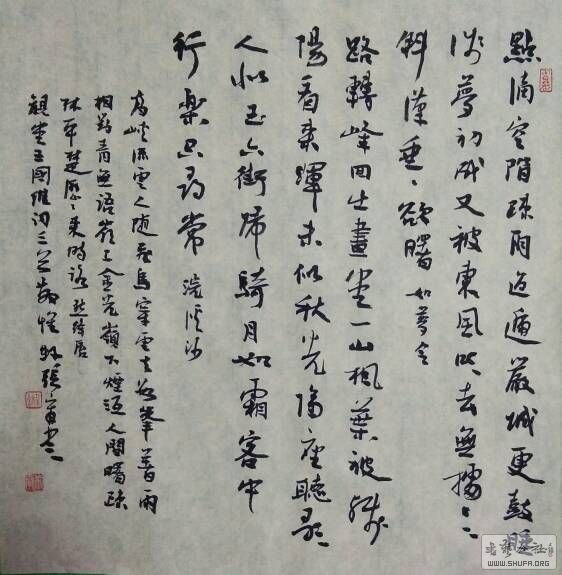 點滴空階疎雨迢遞嚴城更鼓睡
淺夢初成又被東風吹去無據々々
斜漢垂々欲曙 如夢令
路轉峰回出畫堂一山楓葉被殘
陽看來渾未似秋光隔座聽歌
人似玉六街歸騎月如霜客中
行樂只尋常 浣溪沙
高峽流雲人随飛鳥穿雲去數峯著雨
相對青無語嶺上金光嶺下煙沍人間曙疎
林平楚歷々來時路 點絳唇
觀堂王國維詞三首 張
WWW.SHUFA.ORG